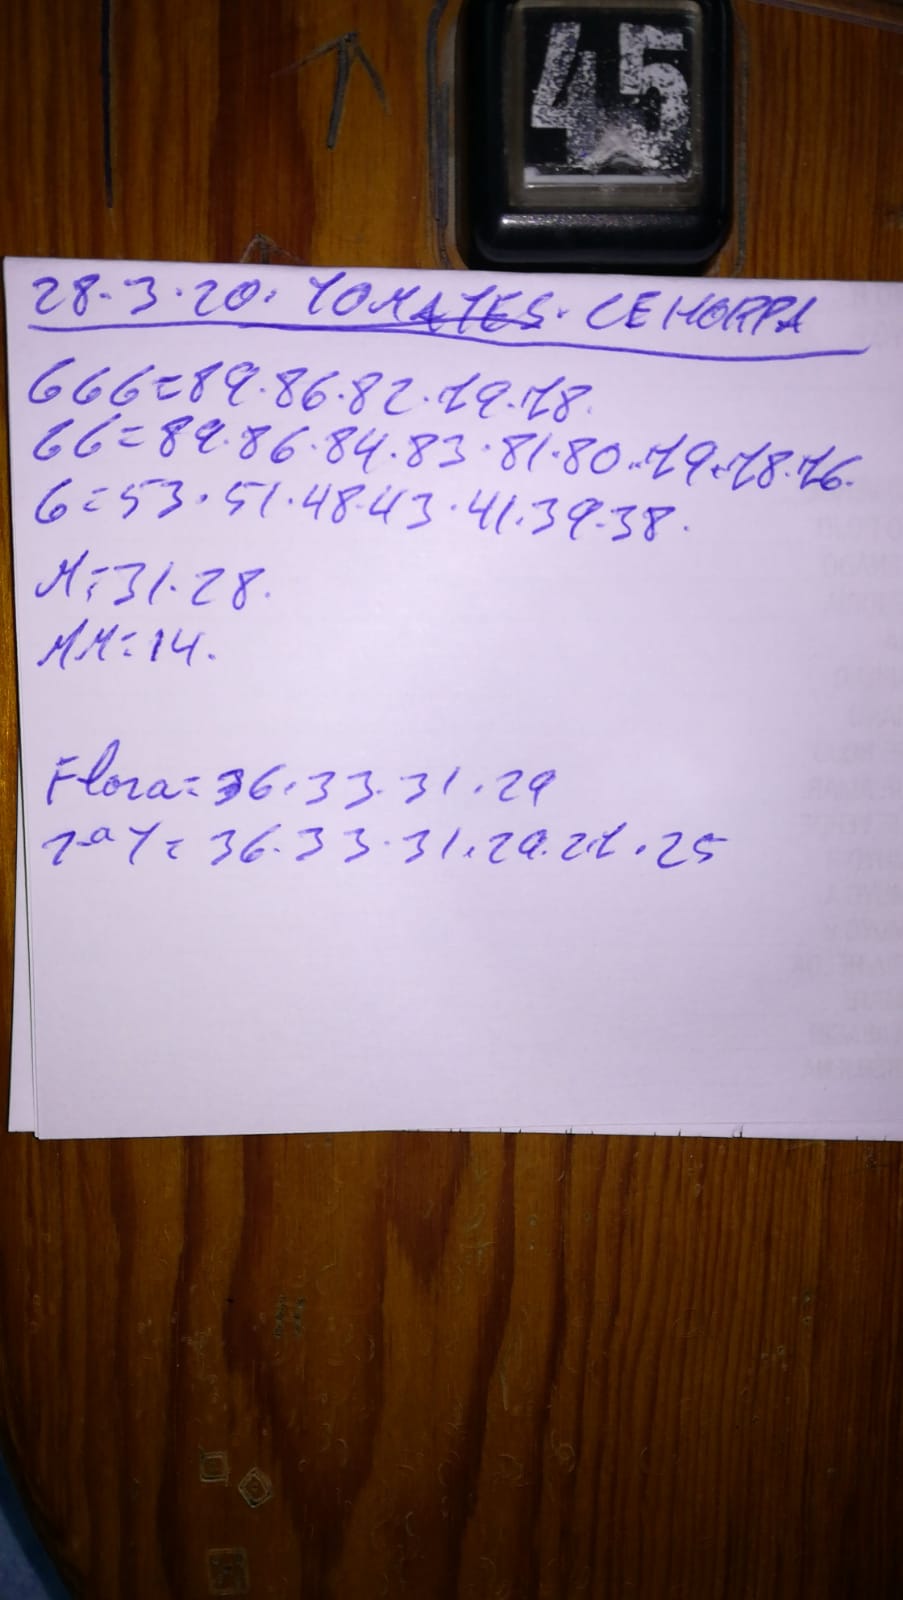 45
28-3-20. TOMATES. CEHORPA
GGG=89.86.82.79.78.
GG=89.86.84.83.81.80.79.78.76.
G=53.51.48.43.41.39.38.
M=31.28.
MM=14.
Flora=36.33.31.29
2ªT=36.33.31.29.27.25